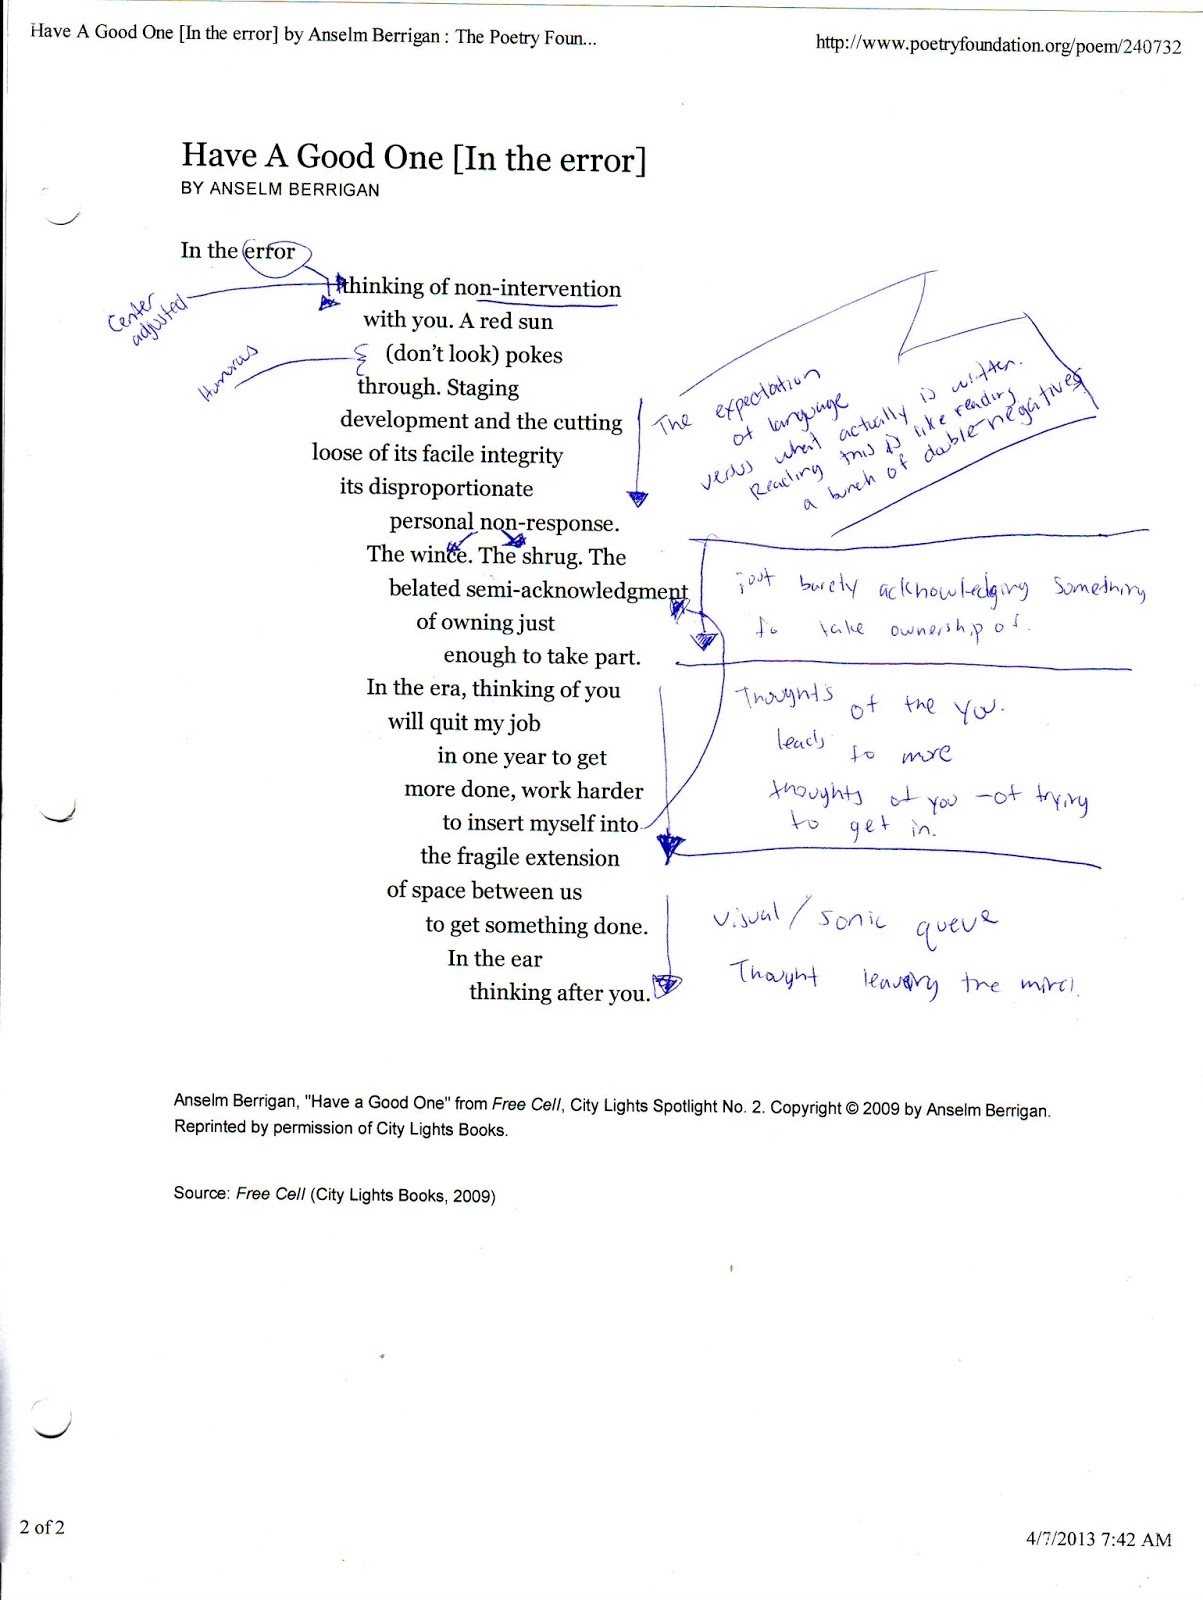 Have A Good One [In the error] by Anselm Berrigan : The Poetry Foun...
http://www.poetryfoundation.org/poem/240732
Have A Good One [In the error]
BY ANSELM BERRIGAN
In the error
thinking of non-intervention
with you. A red sun
(don't look) pokes
through. Staging
development and the cutting
loose of its facile integrity
its disproportionate
personal non-response.
The wince. The shrug. The
belated semi-acknowledgment
of owning just
enough to take part.
In the era, thinking of you
will quit my job
in one year to get
more done, work harder
to insert myself into
the fragile extension
of space between us
to get something done.
In the ear
thinking after you.
Center
adjusted
Humorous
The expectation
of language
versus what actually is written.
Reading this is like reading
a bunch of double-negatives
just barely acknowledging something
to take ownership of.
Thoughts of the you.
leads to more
thoughts of you - of trying
to get in.
Visual/sonic queue
Thought leaving the mind.
Anselm Berrigan, "Have a Good One" from Free Cell, City Lights Spotlight No. 2. Copyright © 2009 by Anselm Berrigan.
Reprinted by permission of City Lights Books.
Source: Free Cell (City Lights Books, 2009)
2 of 2
4/7/2013 7:42 AM